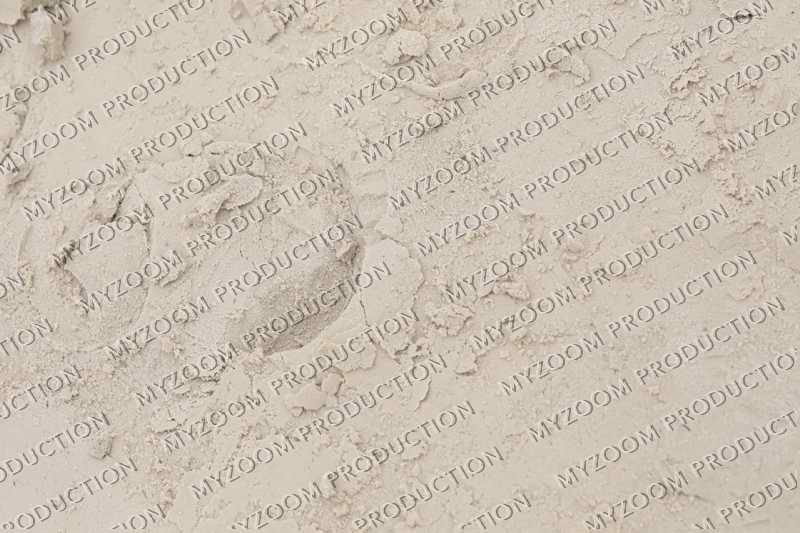 MYZOOM PRODUCTION